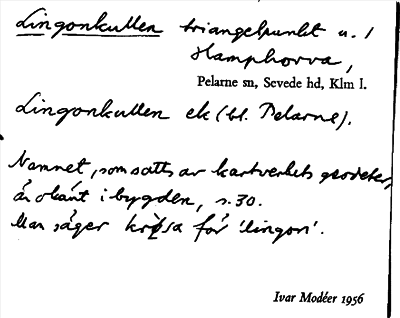 Lingonkullen triangelpunkt u. /
Hamphorva,
Pelarne sn, Sevede hd, Klm l.
Lingonkullen ek (bl. Pelarne).
Namnet, som satts av kartverkets geodeter,
är okänt i bygden, s. 30.
Man säger krösa för 'lingon'.
Ivar Modéer 1956